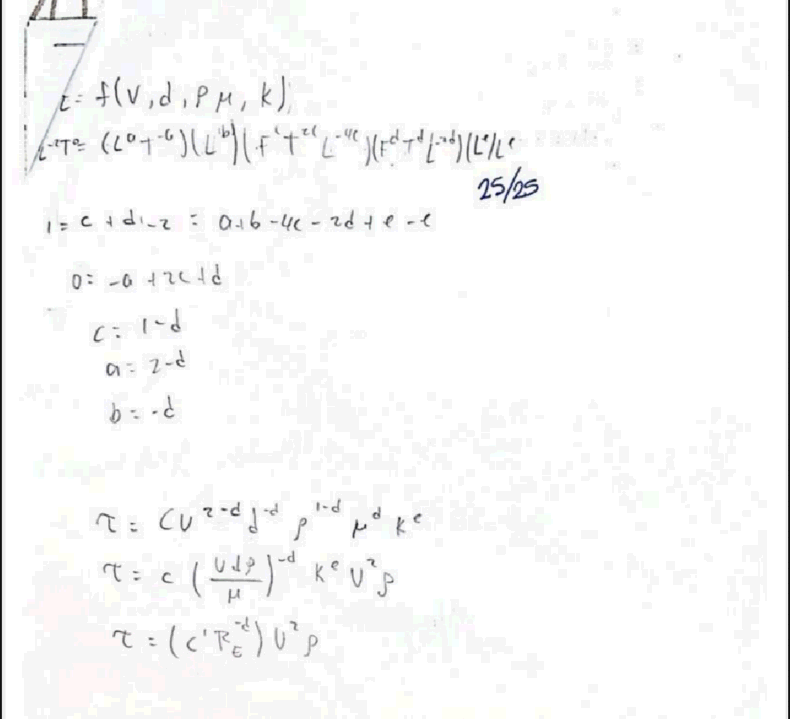 τ = f(V, d, ρ μ, k)
L⁻²T⁰ = (Lᵃ T⁻ᵃ)(Lᵇ)(Fᶜ T²ᶜ L⁻⁴ᶜ)(Fᵈ Tᵈ L⁻²ᵈ)(Lᵉ/Lᵉ
25/25
1 = c + d, -2 = a+b -4c - 2d + e - e
0 = -a + 2c + d
c = 1-d
a = 2-d
b = -d
τ = C V²⁻ᵈ d⁻ᵈ ρ¹⁻ᵈ μᵈ Kᵉ
τ = c (Vdρ/μ)⁻ᵈ Kᵉ V² ρ
τ = (c' R_E⁻ᵈ) V² ρ